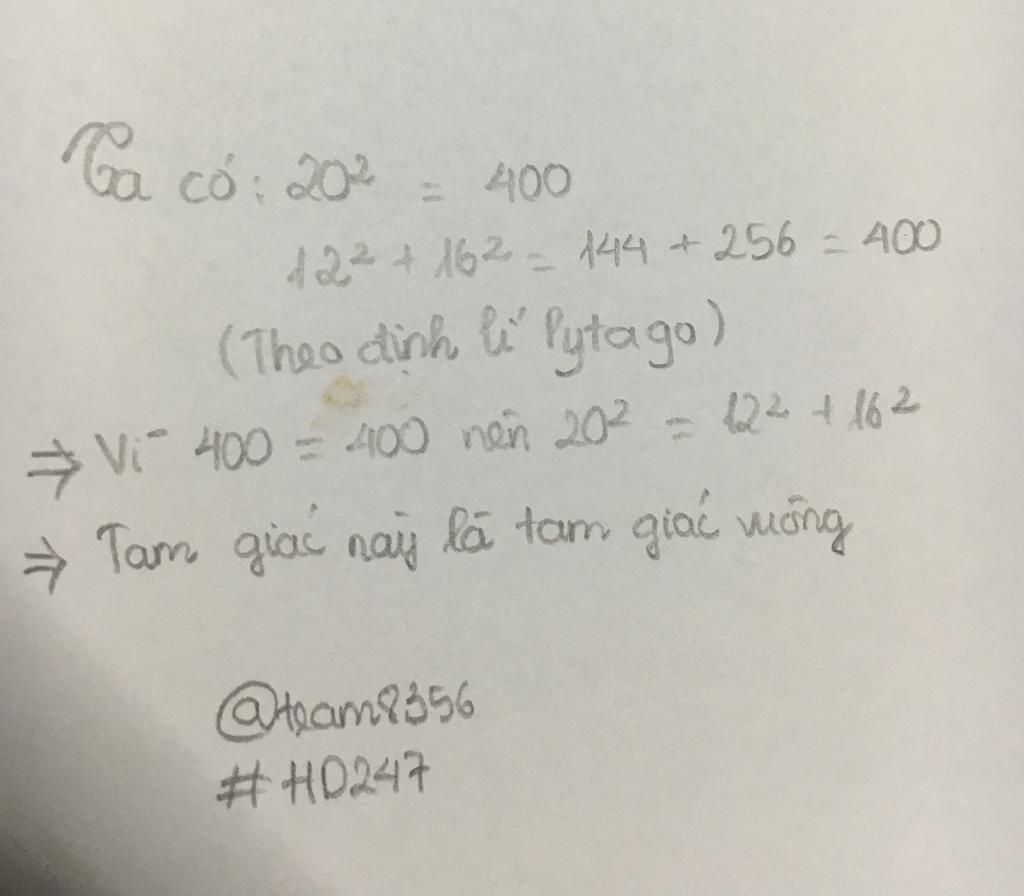 Ta có: 20² = 400
12² + 16² = 144 + 256 = 400
(Theo định lí Pytago)
⇒ Vì 400 = 400 nên 20² = 12² + 16²
⇒ Tam giác này là tam giác vuông
@team8356
#HD247